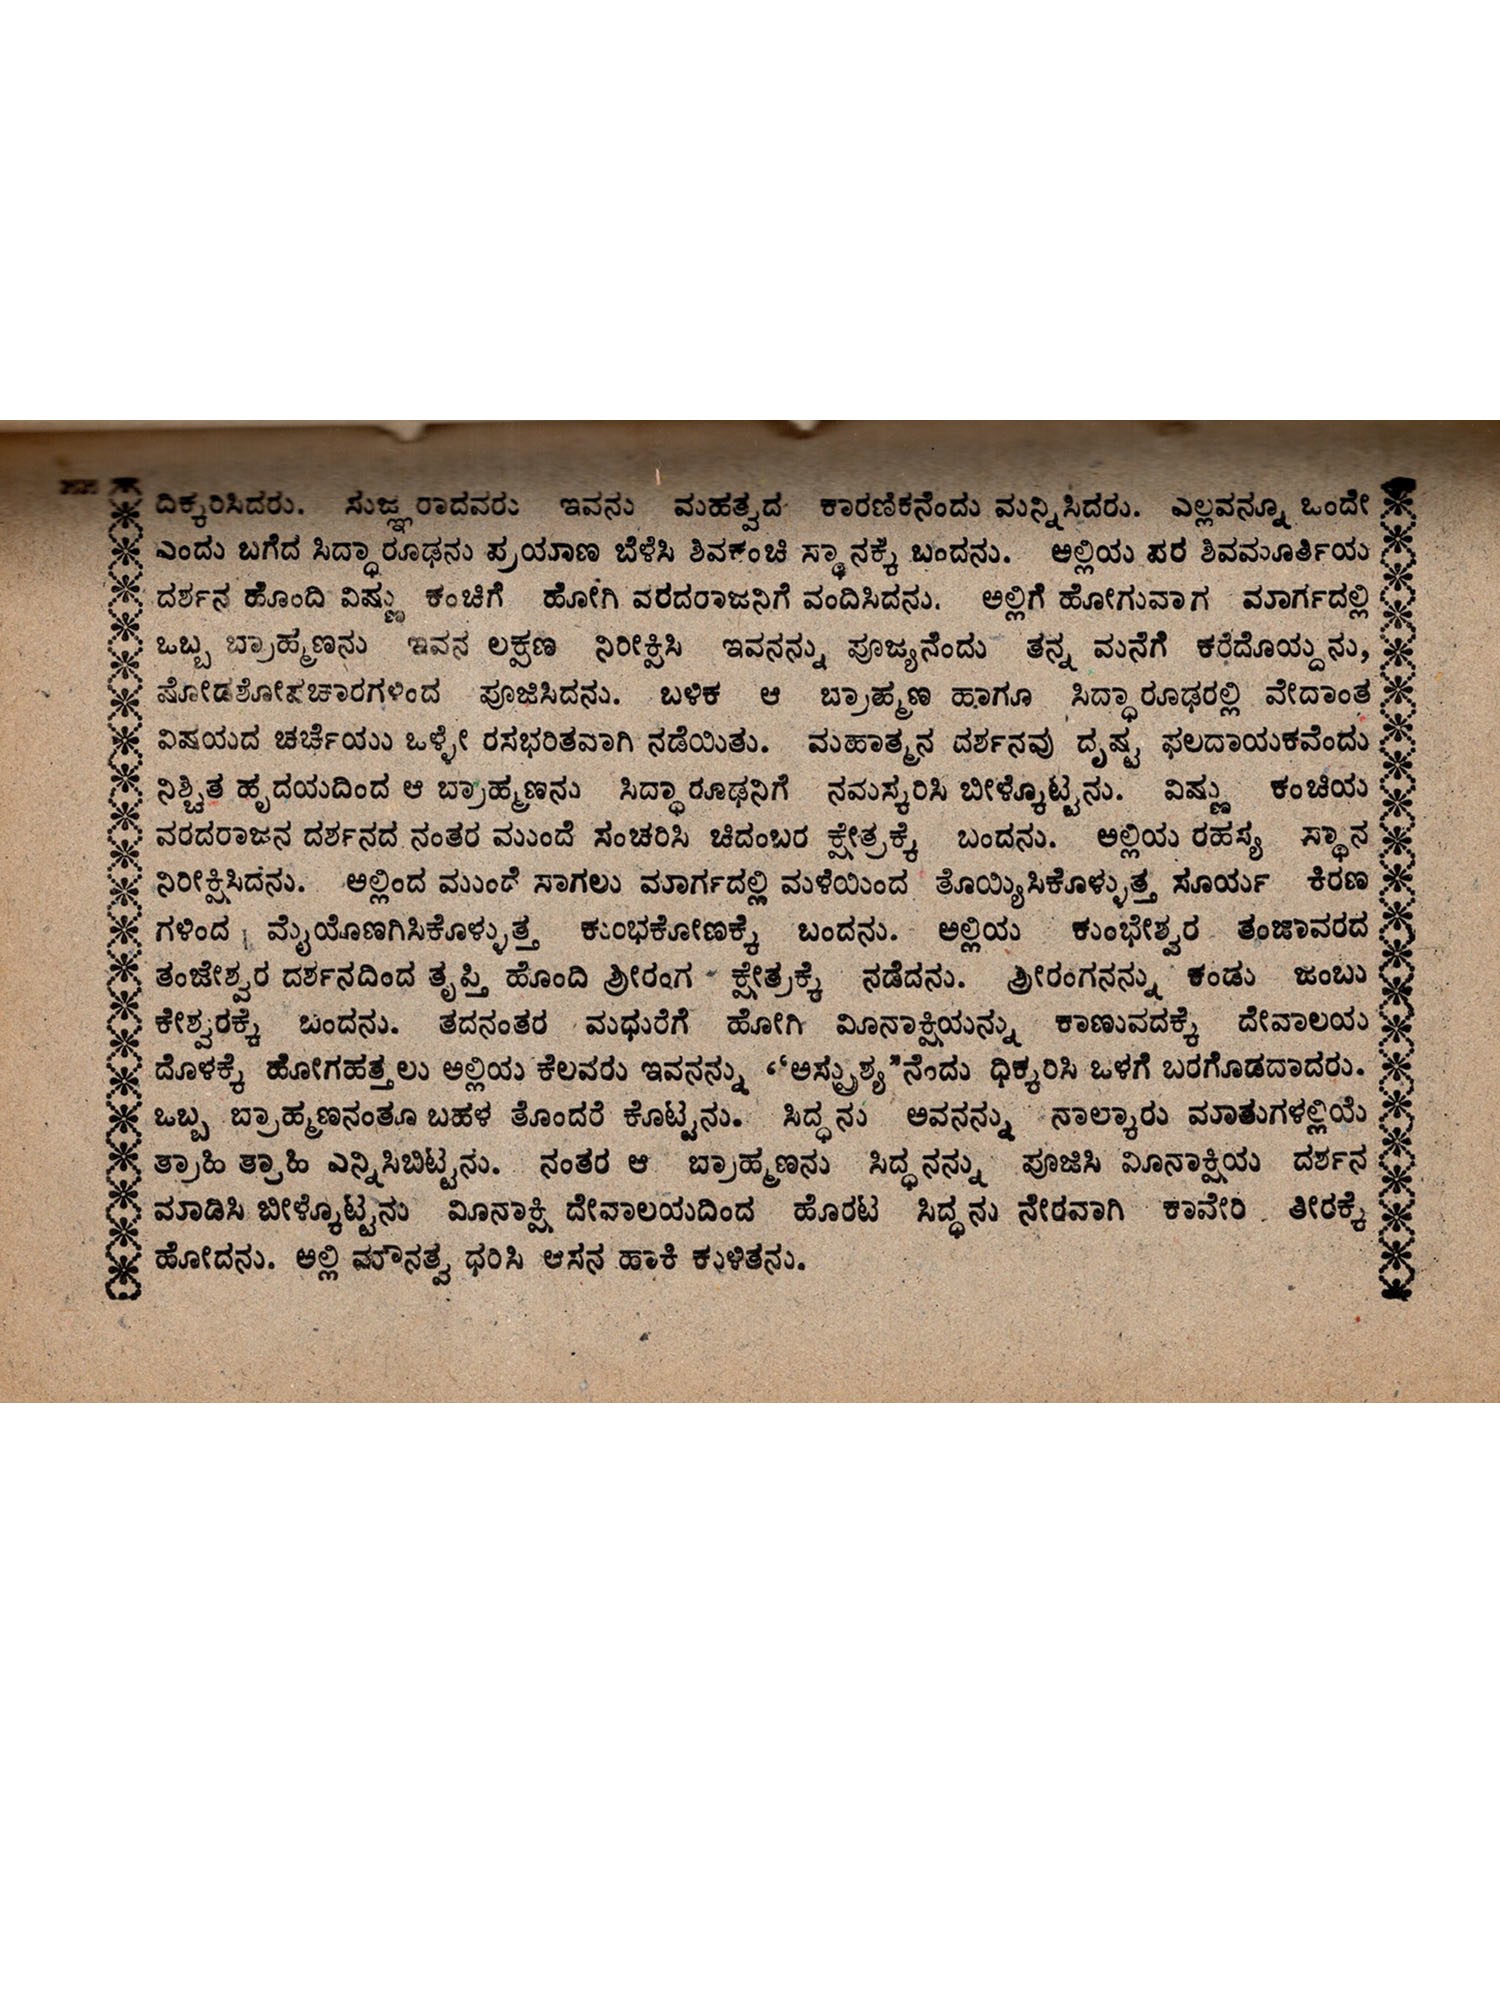 ದಿಕ್ಕರಿಸಿದರು. ಸುಜ್ಞರಾದವರು ಇವನು ಮಹತ್ವದ ಕಾರಣಿಕನೆಂದು ಮನ್ನಿಸಿದರು. ಎಲ್ಲವನ್ನೂ ಒಂದೇ
ಎಂದು ಬಗೆದ ಸಿದ್ಧಾರೂಢನು ಪ್ರಯಾಣ ಬೆಳೆಸಿ ಶಿವಕಂಚಿ ಸ್ಥಾನಕ್ಕೆ ಬಂದನು. ಅಲ್ಲಿಯ ಪರ ಶಿವಮೂರ್ತಿಯ
ದರ್ಶನ ಹೊಂದಿ ವಿಷ್ಣು ಕಂಚಿಗೆ ಹೋಗಿ ವರದರಾಜನಿಗೆ ವಂದಿಸಿದನು. ಅಲ್ಲಿಗೆ ಹೋಗುವಾಗ ಮಾರ್ಗದಲ್ಲಿ
ಒಬ್ಬ ಬ್ರಾಹ್ಮಣನು ಇವನ ಲಕ್ಷಣ ನಿರೀಕ್ಷಿಸಿ ಇವನನ್ನು ಪೂಜ್ಯನೆಂದು ತನ್ನ ಮನೆಗೆ ಕರೆದೊಯ್ದನು,
ಷೋಡಶೋಪಚಾರಗಳಿಂದ ಪೂಜಿಸಿದನು. ಬಳಿಕ ಆ ಬ್ರಾಹ್ಮಣ ಹಾಗೂ ಸಿದ್ಧಾರೂಢರಲ್ಲಿ ವೇದಾಂತ
ವಿಷಯದ ಚರ್ಚೆಯು ಒಳ್ಳೇ ರಸಭರಿತವಾಗಿ ನಡೆಯಿತು. ಮಹಾತ್ಮನ ದರ್ಶನವು ದೃಷ್ಟ ಫಲದಾಯಕವೆಂದು
ನಿಶ್ಚಿತ ಹೃದಯದಿಂದ ಆ ಬ್ರಾಹ್ಮಣನು ಸಿದ್ಧಾರೂಢನಿಗೆ ನಮಸ್ಕರಿಸಿ ಬೀಳ್ಕೊಟ್ಟನು. ವಿಷ್ಣು ಕಂಚಿಯ
ವರದರಾಜನ ದರ್ಶನದ ನಂತರ ಮುಂದೆ ಸಂಚರಿಸಿ ಚಿದಂಬರ ಕ್ಷೇತ್ರಕ್ಕೆ ಬಂದನು. ಅಲ್ಲಿಯ ರಹಸ್ಯ ಸ್ಥಾನ
ನಿರೀಕ್ಷಿಸಿದನು. ಅಲ್ಲಿಂದ ಮುಂದೆ ಸಾಗಲು ಮಾರ್ಗದಲ್ಲಿ ಮಳೆಯಿಂದ ತೊಯ್ಯಿಸಿಕೊಳ್ಳುತ್ತ ಸೂರ್ಯ ಕಿರಣ
ಗಳಿಂದ ಮೈಯೊಣಗಿಸಿಕೊಳ್ಳುತ್ತ ಕುಂಭಕೋಣಕ್ಕೆ ಬಂದನು. ಅಲ್ಲಿಯ ಕುಂಭೇಶ್ವರ ತಂಜಾವರದ
ತಂಜೇಶ್ವರ ದರ್ಶನದಿಂದ ತೃಪ್ತಿ ಹೊಂದಿ ಶ್ರೀರಂಗ ಕ್ಷೇತ್ರಕ್ಕೆ ನಡೆದನು. ಶ್ರೀರಂಗನನ್ನು ಕಂಡು ಜಂಬು
ಕೇಶ್ವರಕ್ಕೆ ಬಂದನು. ತದನಂತರ ಮಧುರೆಗೆ ಹೋಗಿ ಮೀನಾಕ್ಷಿಯನ್ನು ಕಾಣುವದಕ್ಕೆ ದೇವಾಲಯ
ದೊಳಕ್ಕೆ ಹೋಗಹತ್ತಲು ಅಲ್ಲಿಯ ಕೆಲವರು ಇವನನ್ನು “ಅಸ್ಪ್ರಶ್ಯ”ನೆಂದು ಧಿಕ್ಕರಿಸಿ ಒಳಗೆ ಬರಗೊಡದಾದರು.
ಒಬ್ಬ ಬ್ರಾಹ್ಮಣನಂತೂ ಬಹಳ ತೊಂದರೆ ಕೊಟ್ಟನು. ಸಿದ್ಧನು ಅವನನ್ನು ನಾಲ್ಕಾರು ಮಾತುಗಳಲ್ಲಿಯೆ
ತ್ರಾಹಿ ತ್ರಾಹಿ ಎನ್ನಿಸಿಬಿಟ್ಟನು. ನಂತರ ಆ ಬ್ರಾಹ್ಮಣನು ಸಿದ್ಧನನ್ನು ಪೂಜಿಸಿ ಮೀನಾಕ್ಷಿಯ ದರ್ಶನ
ಮಾಡಿಸಿ ಬೀಳ್ಕೊಟ್ಟನು ಮೀನಾಕ್ಷಿ ದೇವಾಲಯದಿಂದ ಹೊರಟ ಸಿದ್ಧನು ನೇರವಾಗಿ ಕಾವೇರಿ ತೀರಕ್ಕೆ
ಹೋದನು. ಅಲ್ಲಿ ಮೌನತ್ವ ಧರಿಸಿ ಆಸನ ಹಾಕಿ ಕುಳಿತನು.